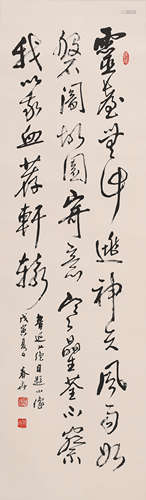 靈臺無計逃神矢風雨如
磐闇故園寄意寒星荃不察
我以我血薦軒轅
魯迅先生自題小像
戊寅夏日春